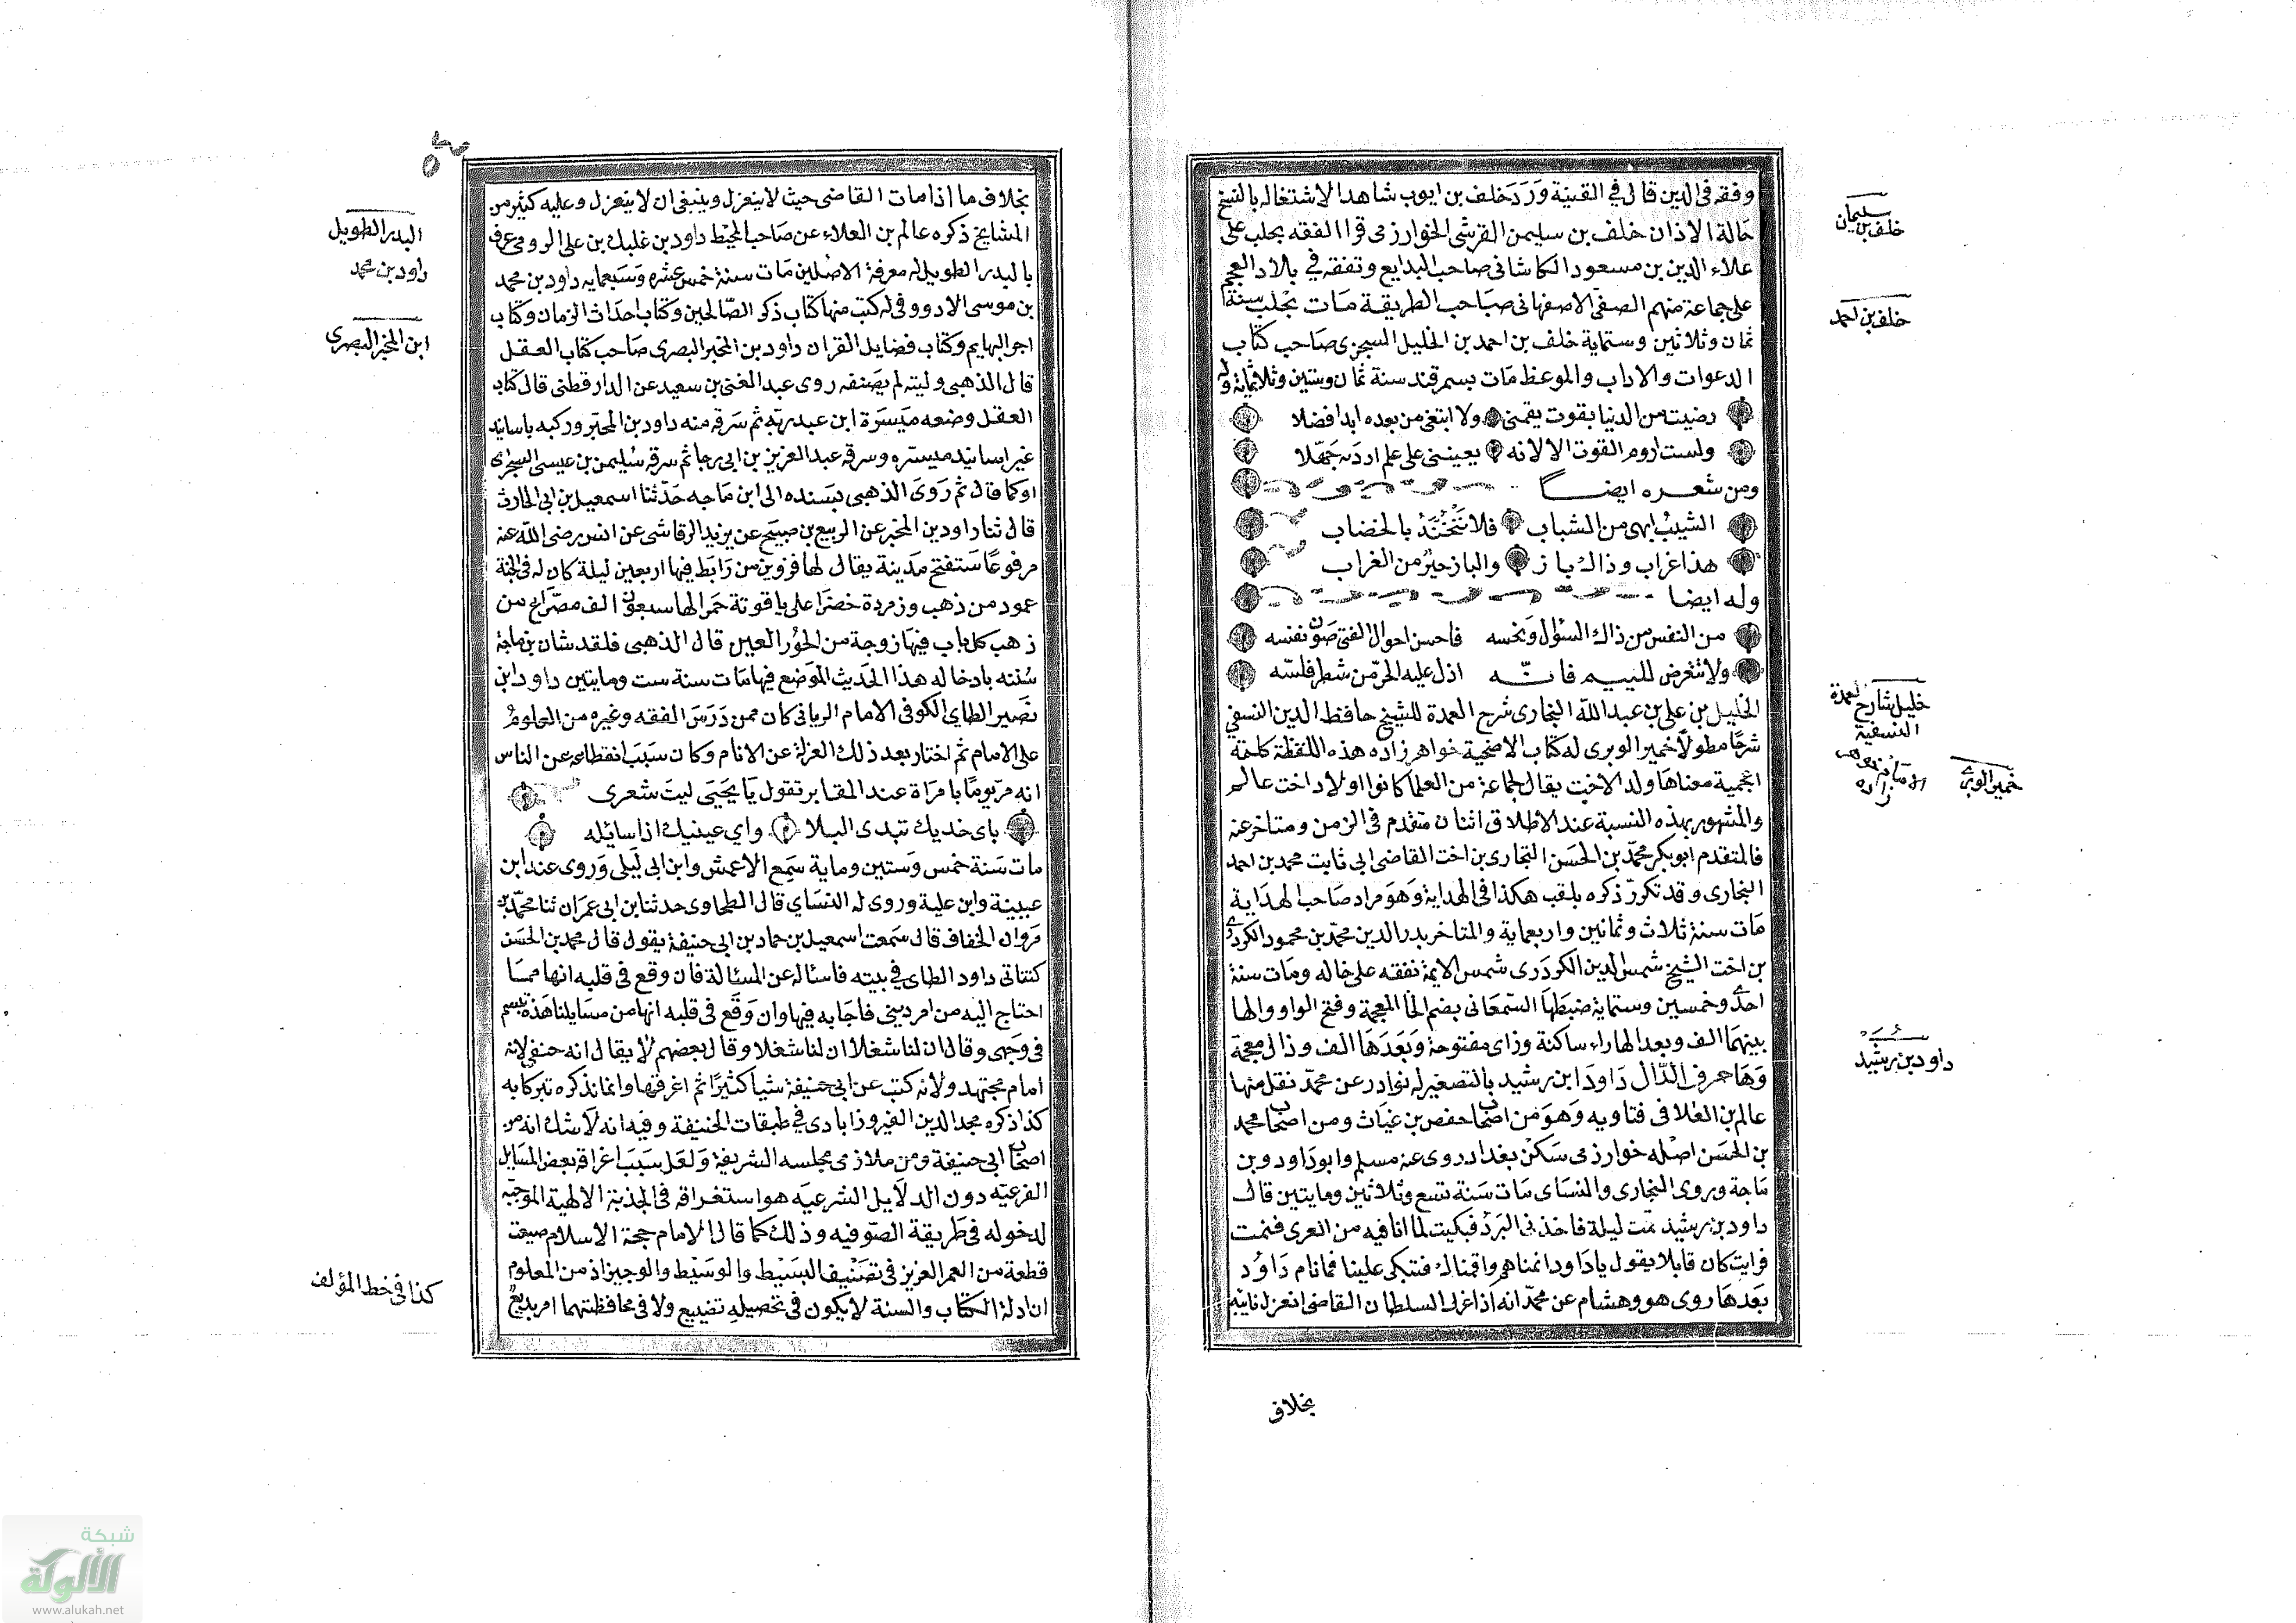 وفقه في الدين قال في القنية ورد خلف بن ايوب شاهدا لاشتغاله بالنسخ
حالة الاذان خلف بن سليمن القرشي الخوارزمي قرا الفقه بحلب على
علاء الدين بن مسعود الكاشاني صاحب البدايع وتفقه في بلاد العجم
على جماعة منهم الصفي الاصفهاني صاحب الطريقة مات بحلب سنة
ثمان وثلاثين وستماية خلف بن احمد بن الخليل السجزي صاحب كتاب
الدعوات والاداب والموعظ مات بسمرقند سنة ثمان وستين وثلاثمائة وله
رضيت من الدنيا بقوت يقمنى ولا ابتغي من بعده ابدا فضلا
ولست اروم القوت الا لانه يعينني على علم اردبه جهلا
ومن شعره ايضا
الشيب ابهى من الشباب فلا تهجننه بالخضاب
هذا غراب وذاك باز والباز خير من الغراب
وله ايضا
من النفس من ذاك السؤال ونحسه فاحسن احوال الفتى صون نفسه
ولا تتعرض لللييم فانه اذل عليه الحر من شطر فلسه
الخليل بن علي بن عبد الله البخارى شرح العمدة للشيخ حافظ الدين النسفي
شرحا مطولا خمير الوبرى له كتاب الاضحية خواهر زاده هذه اللفظة كلمة
اعجمية معناها ولد الاخت يقال لجماعة من العلما كانوا اولاد اخت عالم
والمشهور بهذه النسبة عند الاطلاق اثنان متقدم في الزمن ومتاخر عنه
فالمتقدم ابو بكر محمد بن الحسن البخارى بن اخت القاضى ابي ثابت محمد بن احمد
البخارى وقد تكرر ذكره بلقب هكذا في الهداية وهو مراد صاحب الهداية
مات سنة ثلاث وثمانين واربعماية والمتاخر بدر الدين محمد بن محمود الكردري
بن اخت الشيخ شمس الدين الكردرى شمس الايمة تفقه على خاله ومات سنة
احدى وخمسين وستماية ضبطها السمعانى بضم الخا المعجمة وفتح الواو والها
بينهما الف وبعد الها راء ساكنة وزاى مفتوحة وبعدها الف وذال معجمة
وها حرف الدال داود ابن رشيد بالتصغير له نوادر عن محمد نقل منها
عالم بن العلا في فتاويه وهو من اصحاب حفص بن غياث ومن اصحاب محمد
بن الحسن اصله خوارزمى سكن بغداد روى عنه مسلم وابو داود وبن
ماجة وروى البخارى والنساى مات سنة تسع وثلاثين ومايتين قال
داود بن رشيد قمت ليلة فاخذني البرد فبكيت لما انا فيه من العرى فنمت
فرايت كان قايلا يقول يا داود انمناهم واقمناك فتبكى علينا فما نام داود
بعدها روى هو وهشام عن محمد انه اذا عزل السلطان القاضى انعزل نايبه
بخلاف
خلف بن سليمان
خلف بن احمد
خليل شارح العمدة
النسفية
خمير الوبرى
داود بن رشيد
بخلاف ما اذا مات القاضى حيث لا ينعزل وينبغى ان لا ينعزل وعليه كثير من
المشايخ ذكره عالم بن العلاء عن صاحب المحيط داود بن غلبك بن على الرومى عرف
بالبدر الطويل له معرفة الاصلين مات سنة خمس عشره وسبعمايه داود بن محمد
بن موسى الادووفى له كتب منها كتاب ذكر الصالحين وكتاب احداث الزمان وكتاب
اجر البهايم وكتاب فضايل القران داود بن المخبر البصرى صاحب كتاب العقل
قال الذهبى وليته لم يصنفه روى عبد الغنى بن سعيد عن الدارقطنى قال كتاب
العقل وضعه ميسرة ابن عبد ربه ثم سرقه منه داود بن المحبر وركبه باسانيد
غير اسانيد ميسره وسرقه عبد العزيز بن ابى رجا ثم سرقه سليمن بن عيسى السجزى
اوكما قال ثم روى الذهبى بسنده الى ابن ماجه حدثنا اسمعيل بن ابى الحارث
قال ثنا داود بن المخبر عن الربيع بن صبيح عن يزيد الرقاشى عن انس رضى الله عنه
مرفوعا ستفتح مدينة يقال لها قزوين من رابط فيها اربعين ليلة كان له فى الجنة
عمود من ذهب وزمردة خضرا على ياقوتة حمرا لها سبعون الف مصراع من
ذهب كل باب فيها زوجة من الحور العين قال الذهبى فلقد شان بن ماجة
سننه بادخاله هذا الحديث الموضع فيها مات سنة ست ومايتين داود ابن
نصير الطاى الكوفى الامام الربانى كان ممن درس الفقه وغيره من العلوم
على الامام ثم اختار بعد ذلك العزلة عن الانام وكان سبب انقطاعه عن الناس
انه مر يوما بامراة عند المقابر تقول يا يحيى ليت شعرى
باى خديك تبدى البلا واي عينيك اذا سائله
مات سنة خمس وستين وماية سمع الاعمش وابن ابى ليلى وروى عنه ابن
عيينة وابن علية وروى له النساي قال الطحاوى حدثنا بن ابى عمران ثنا محمد بن
مروان الخفاف قال سمعت اسمعيل بن حماد بن ابى حنيفة يقول قال محمد بن الحسن
كنت اتى داود الطاى في بيته فاساله عن المسئالة فان وقع فى قلبه انها مما
احتاج اليه من امر دينى فاجابه فيها وان وقع فى قلبه انها من مسايلنا هذة تبسم
فى وجهى وقال ان لنا شغلا ان لنا شغلا وقال بعضهم لا يقال انه حنفى لانه
امام مجتهد ولانه كتب عن ابى حنيفة شيا كثيرا ثم اغرقها وانما نذكره تبركا به
كذا ذكره مجد الدين الفيروزابادى في طبقات الحنيفة وفيه انه لا شك انه من
اصحاب ابى حنيفة ومن ملازمى مجلسه الشريفة ولعل سبب اغراقه بعض المسايل
الفرعيه دون الدلايل الشرعيه هو استغراقه فى الجذبة الالهية الموجبه
لدخوله فى طريقة الصوفيه وذلك كما قال الامام حجة الاسلام ضيعت
قطعة من العمر العزيز فى تصنيف البسيط والوسيط والوجيز اذ من المعلوم
ان ادلة الكتاب والسنة لا يكون فى تحصيله تضييع ولا فى محافظتهما امر بديع
البدر الطويل
داود بن محمد
ابن المخبر البصرى
كذا فى خط المؤلف
شبكة
الألوكة
www.alukah.net